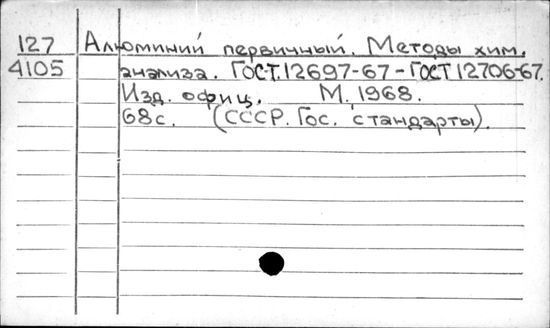 127 Алюминий первичный. Методы хим.
4105 анализа. ГОСТ.12697-67-ГОСТ 12706-67.
Изд. офиц. М. 1968.
68 с. (СССР. Гос. стандарты).